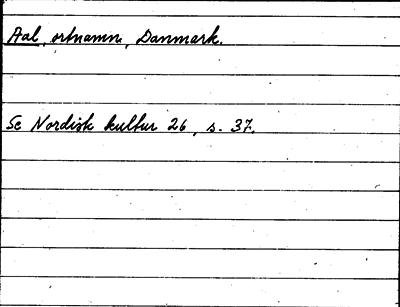 Aal, ortnamn, Danmark.
Se Nordisk kultur 26, s. 37.